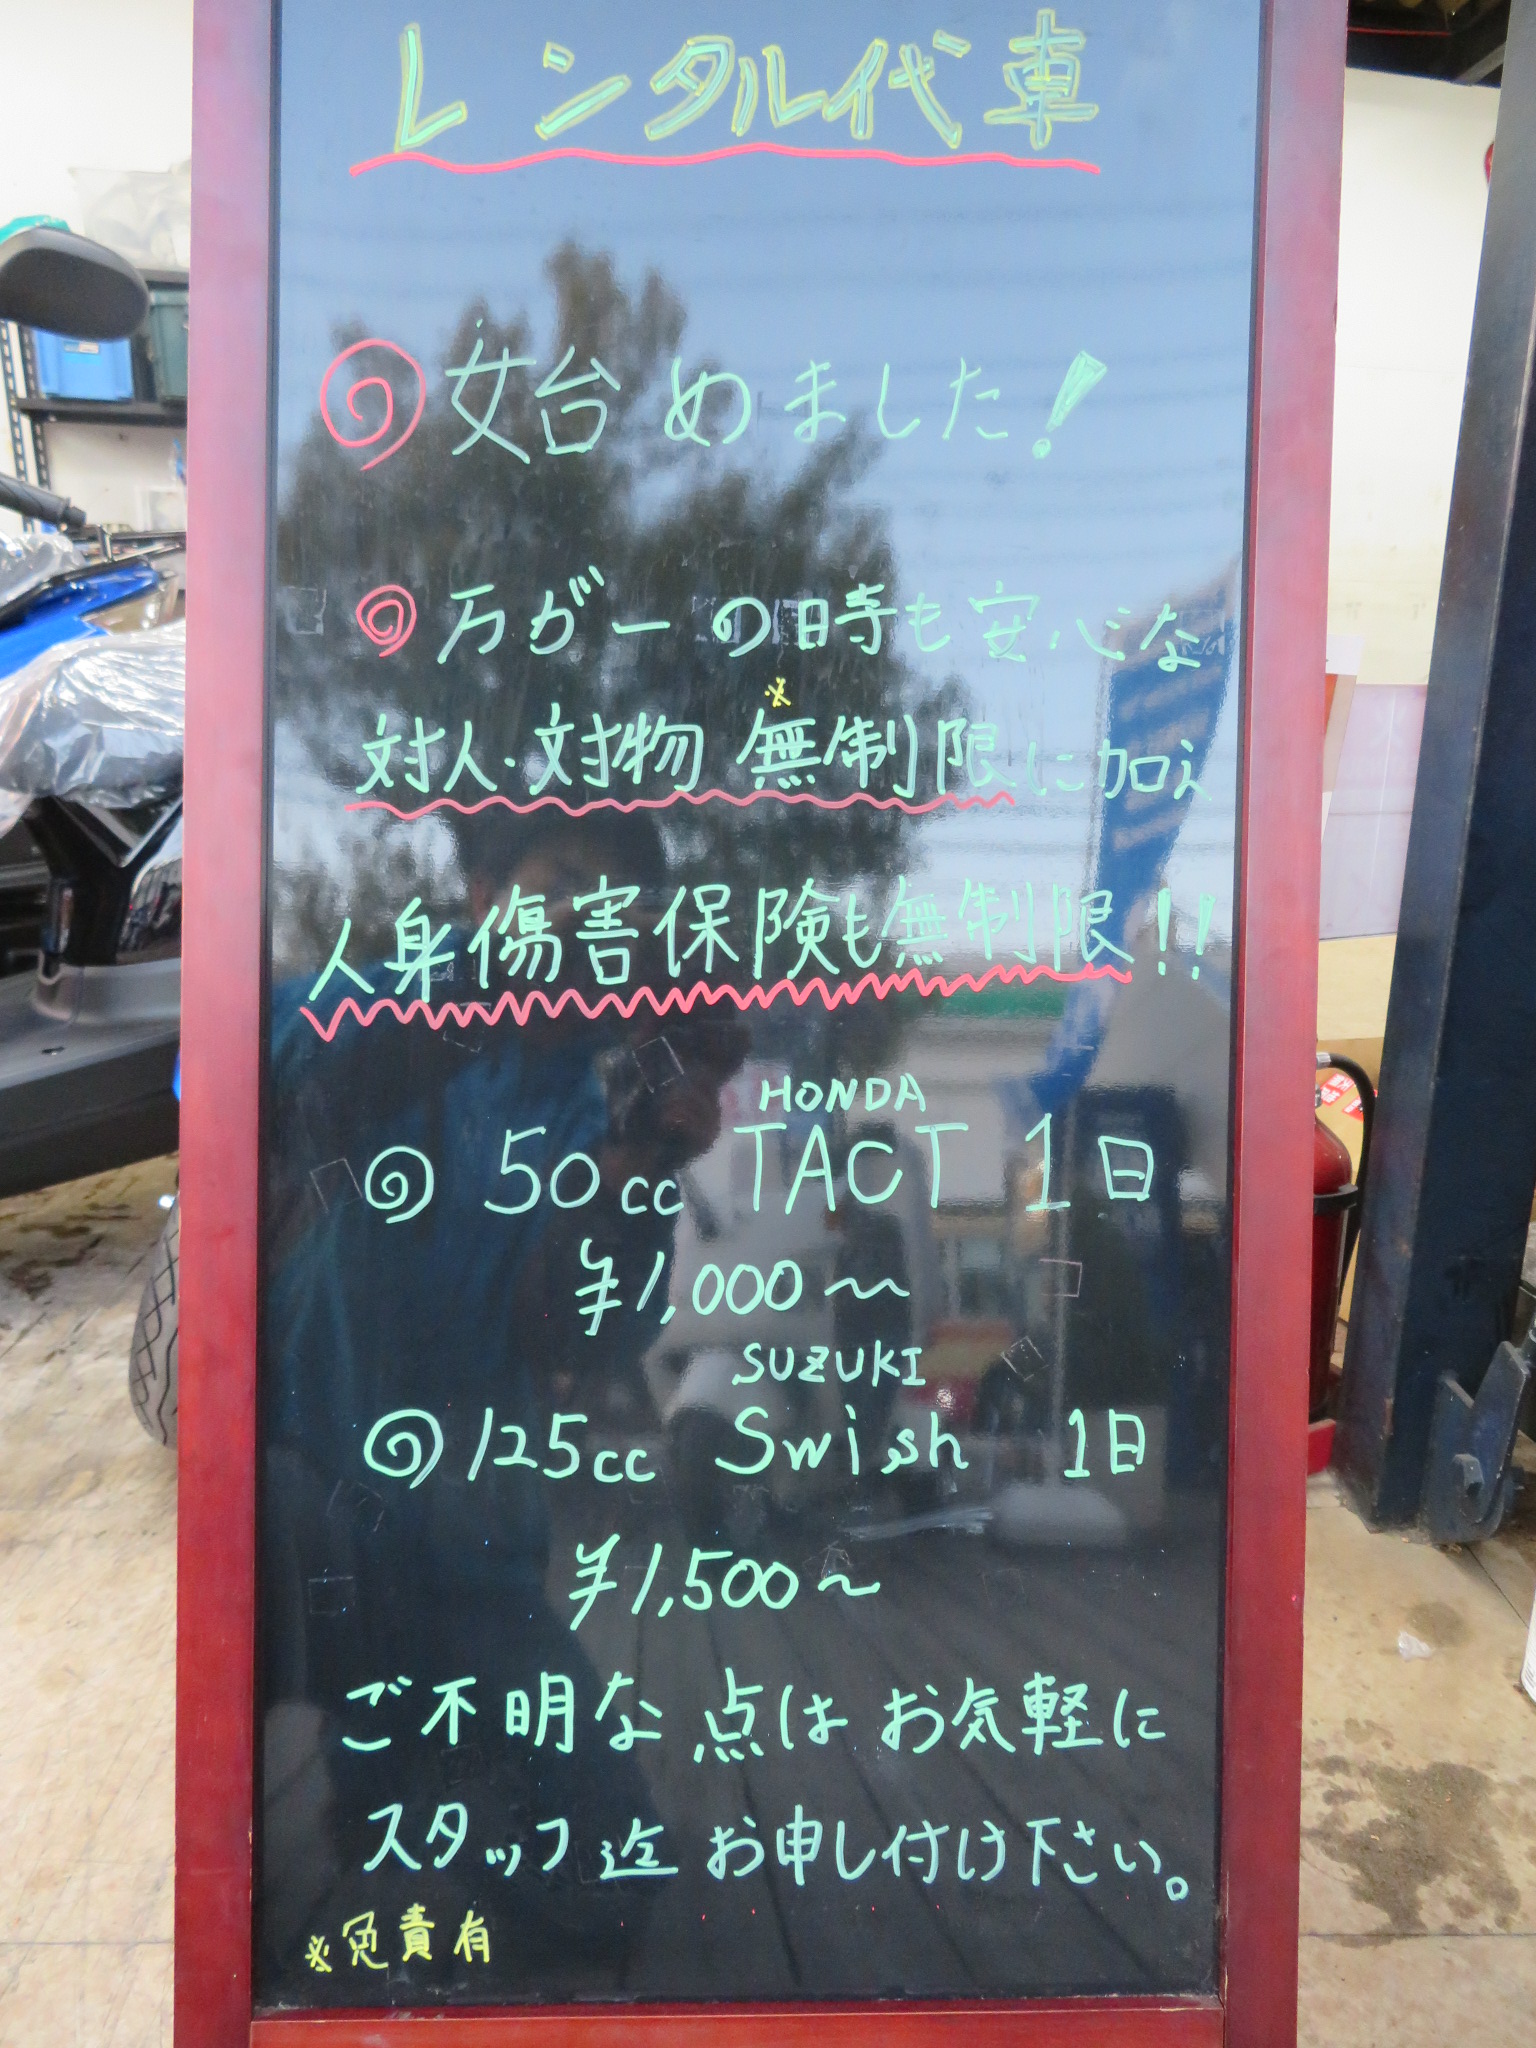 レンタル代車
始めました!
万が一の時も安心な
※
対人・対物 無制限に加え
人身傷害保険も無制限!!
HONDA
50cc TACT 1日
¥1,000〜
SUZUKI
125cc Swish 1日
¥1,500〜
ご不明な点はお気軽に
スタッフ迄お申し付け下さい。
※免責有